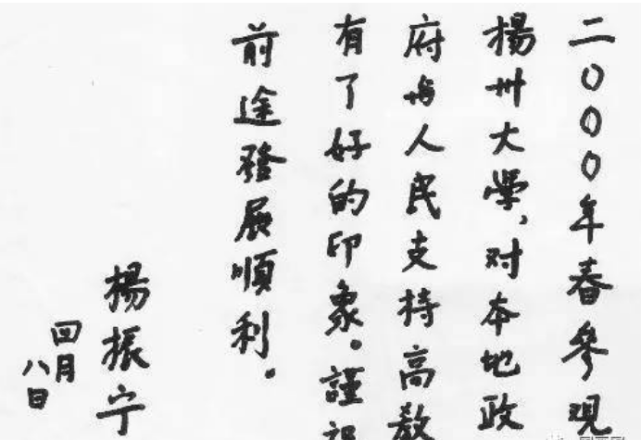 二〇〇〇年春參观
楊州大學，对本地政
府与人民支持高教
有了好的印象。謹祝
前途發展順利。
楊振宁
四月
八日